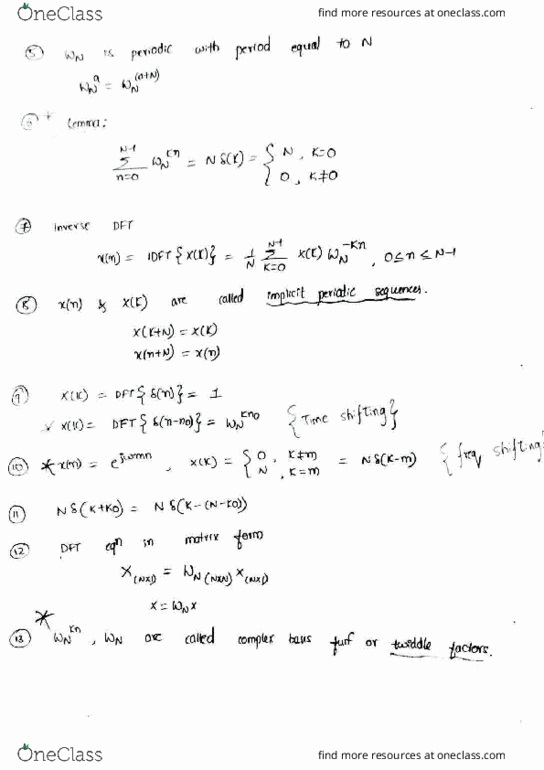 OneClass
find more resources at oneclass.com
⑤ W_N is periodic with period equal to N
W_N^a = W_N^(a+N)
⑥ * Lemma:
∑_{n=0}^{N-1} W_N^{Kn} = N δ(K) = { N , K=0
0 , K≠0
⑦ Inverse DFT
x(n) = IDFT{X(K)} = 1/N ∑_{K=0}^{N-1} X(K) W_N^{-Kn} , 0≤n≤N-1
⑧ x(n) & X(K) are called implicit periodic sequences.
X(K+N) = X(K)
x(n+N) = x(n)
⑨ X(K) = DFT{δ(n)} = 1
X(K) = DFT{δ(n-n0)} = W_N^{Kn0} {Time shifting}
⑩ * x(n) = e^{jωmn} , X(K) = { 0 , K≠m
N , K=m = N δ(K-m) {freq shifting}
⑪ N δ(K+K0) = N δ(K-(N-K0))
⑫ DFT eqn in matrix form
X_(NX1) = W_N (NXN) x_(NX1)
X = W_N x
*
⑬ W_N^{Kn} , W_N are called complex basis func or twiddle factors.
OneClass
find more resources at oneclass.com